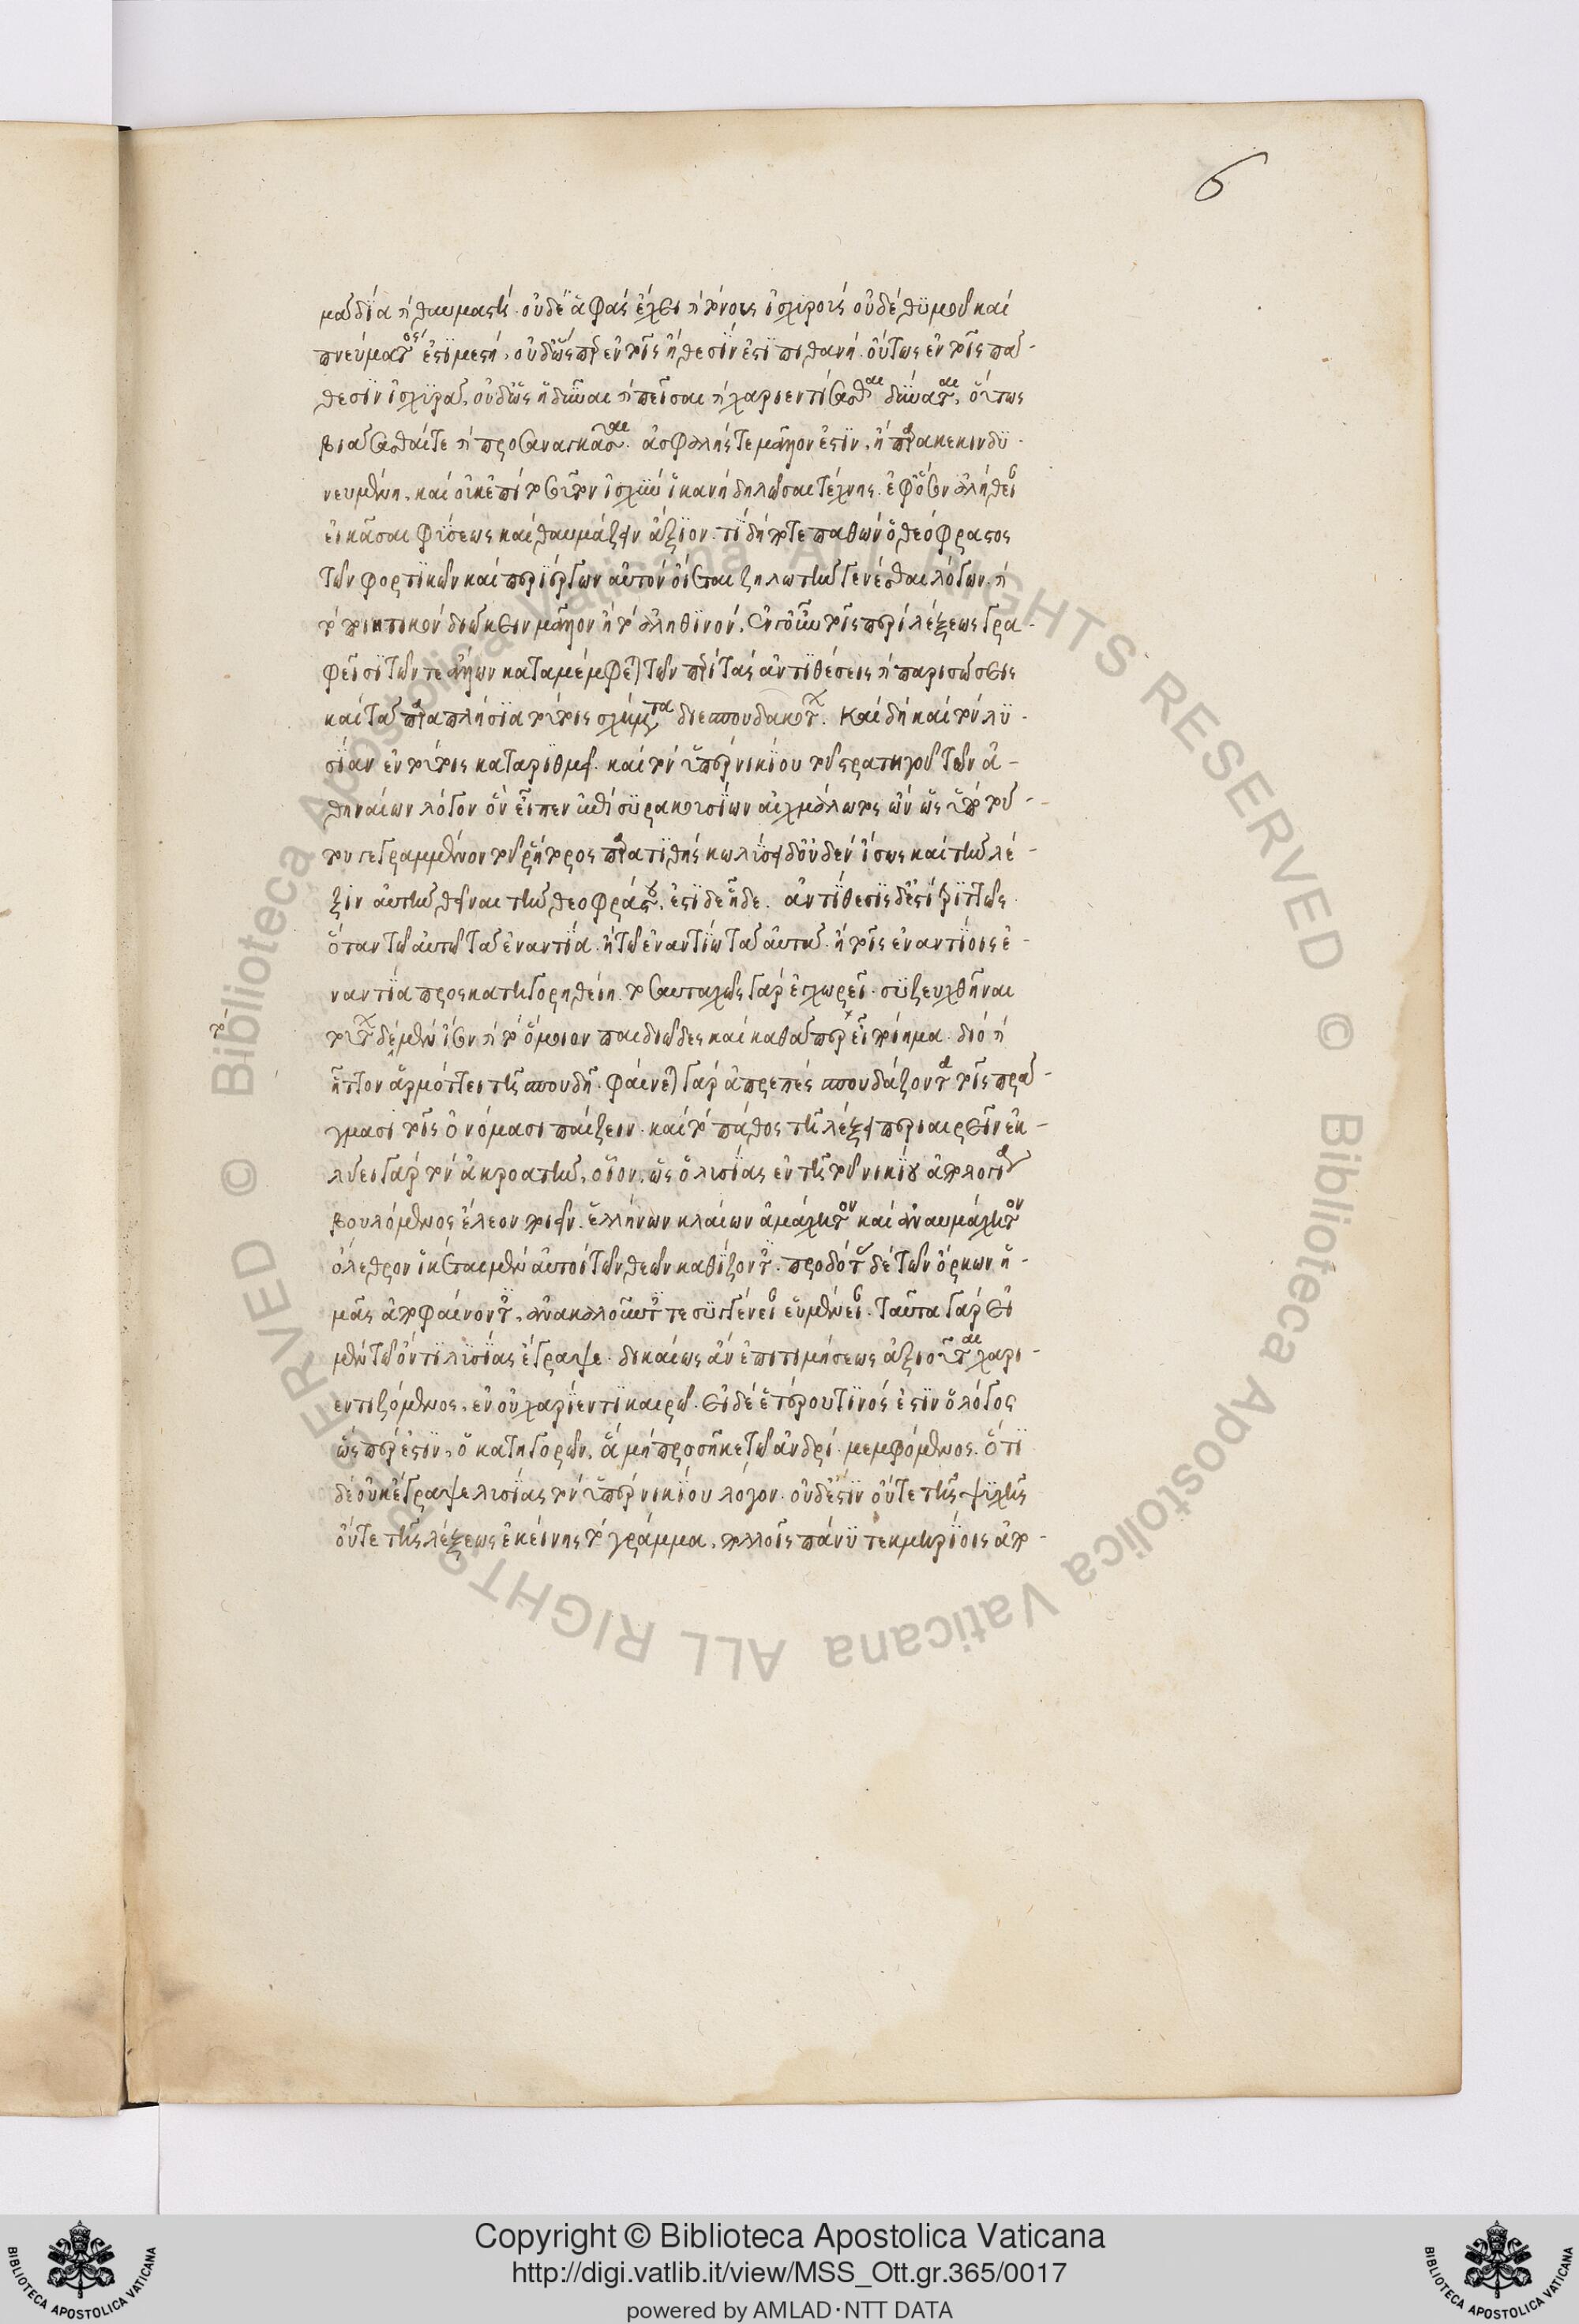 6
μαδία ἢ θαυμαστή. οὐδὲ ἁφὰς ἔχει ἢ τόνους ἰσχυροὺς οὐδὲ θυμοῦ καὶ
πνεύματός ἐστι μεστή. οὐδ' ὥσπερ ἐν τοῖς ἤθεσιν ἐστὶ πιθανή. οὕτως ἐν τοῖς πά-
θεσιν ἰσχυρά. οὐδ' ὡς ἡδῦναι ἢ πεῖσαι ἢ χαριεντίσασθαι δύναται, οὕτως
βιάσασθαί τε ἢ προσαναγκάσαι. ἀσφαλής τε μᾶλλον ἐστὶν, ἢ παρακεκινδυ-
νευμένη, καὶ οὐκ ἐπὶ τοσοῦτον ἰσχὺν ἱκανὴ δηλῶσαι τέχνης. ἐφ' ὅσον ἀληθείας
εἰκάσαι φύσεως καὶ θαυμάζειν ἄξιον. τί δή ποτε παθὼν ὁ θεόφραστος
τῶν φορτικῶν καὶ περιέργων αὐτὸν οἴεται ζηλωτὴν γενέσθαι λόγων. ἢ
τὸ ποιητικὸν διώκειν μᾶλλον ἢ τὸ ἀληθινόν. ἐν γοῦν τοῖς περὶ λέξεως γρα-
φεῖσι τῶν τε ἄλλων καταμέμφεται τῶν περὶ τὰς ἀντιθέσεις ἢ παρισώσεις
καὶ τὰ παραπλήσια τούτοις σχήματα διεσπουδακότων. Καὶ δὴ καὶ τὸν λυ-
σίαν ἐν τούτοις καταριθμεῖ. καὶ τὸν ὑπὲρ νικίου τοῦ στρατηγοῦ τῶν ἀ-
θηναίων λόγον ὃν εἶπεν ἐπὶ συρακουσίων αἰχμάλωτος ὢν ὡς ὑπὸ τού-
του γεγραμμένον τοῦ ῥήτορος παρατιθείς κωλύει δ' οὐδὲν ἴσως καὶ τὴν λέ-
ξιν αὐτὴν θεῖναι τὴν θεοφράστου. ἐστὶ δὲ ἥδε. ἀντίθεσις δ' ἐστὶ τριττῶς
ὅταν τῷ αὐτῷ τὰ ἐναντία. ἢ τῷ ἐναντίῳ τὰ αὐτά. ἢ τοῖς ἐναντίοις ἐ-
ναντία προσκατηγορηθείη. τοσαυταχῶς γὰρ ἐγχωρεῖ συζευχθῆναι
τούτων δὲ μὲν ἴσον ἢ τὸ ὅμοιον παιδιῶδες καὶ καθάπερ εἰ ποίημα. διὸ ἢ
ἧττον ἁρμόττει τῇ σπουδῇ. φαίνεται γὰρ ἀπρεπὲς σπουδάζοντα τοῖς πρά-
γμασι τοῖς ὀνόμασι παίζειν. καὶ τὸ πάθος τῇ λέξει περιαιρεῖν ἐκ-
λύει γὰρ τὸν ἀκροατὴν, οἷον, ὡς ὁ λυσίας ἐν τῇ τοῦ νικίου ἀπολογίᾳ
βουλόμενος ἔλεον ποιεῖν. ἑλλήνων κλαίων ἀμάχητον καὶ ἀναυμάχητον
ὄλεθρον ἱκέται μὲν αὐτοὶ τῶν θεῶν καθίζοντες. προδότας δὲ τῶν ὅρκων ἡ-
μᾶς ἀποφαίνοντες, ἀνακαλοῦντές τε συγγένειαν εὐμένειαν. ταῦτα γὰρ εἰ
μὲν τῷ ὄντι λυσίας ἔγραψε. δικαίως ἂν ἐπιτιμήσεως ἀξιοῦται χαρι-
εντιζόμενος, ἐν οὐ χαρίεντι καιρῷ. εἰ δὲ ἑτέρου τινός ἐστὶν ὁ λόγος
ὥσπερ ἐστὶν, ὁ κατηγορῶν, ἃ μὴ προσῆκε τῷ ἀνδρὶ μεμφόμενος. ὅτι
δὲ οὐκ ἔγραψε λυσίας τὸν ὑπὲρ νικίου λόγον. οὐδ' ἔστιν οὔτε τῆς ψυχῆς
οὔτε τῆς λέξεως ἐκείνης τὸ γράμμα, πολλοῖς πάνυ τεκμηρίοις ἀπο-
Copyright © Biblioteca Apostolica Vaticana
http://digi.vatlib.it/view/MSS_Ott.gr.365/0017
powered by AMLAD·NTT DATA